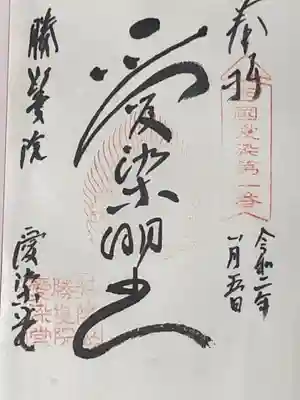 奉拝
西国愛染第一番
令和二年
一月五日
愛染明王
勝鬘院
愛染堂
荒陵山
勝鬘院
愛染堂